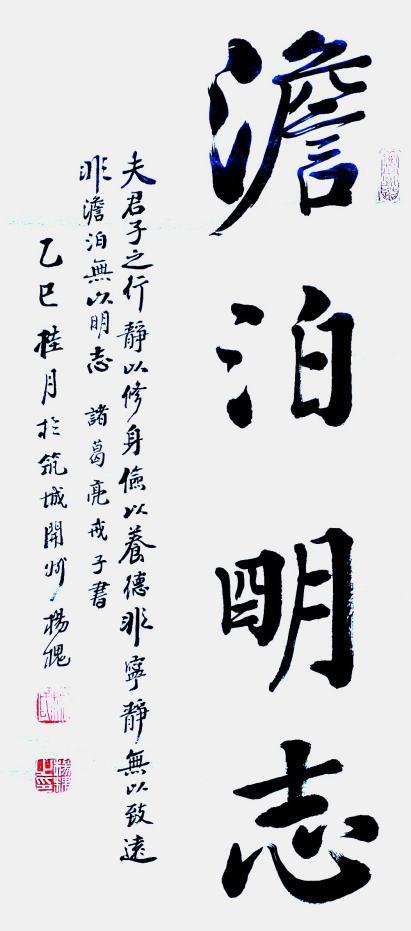 澹泊明志
夫君子之行靜以修身儉以養德非寧靜無以致遠
非澹泊無以明志 諸葛亮戒子書
乙巳桂月於筑城開州楊槐